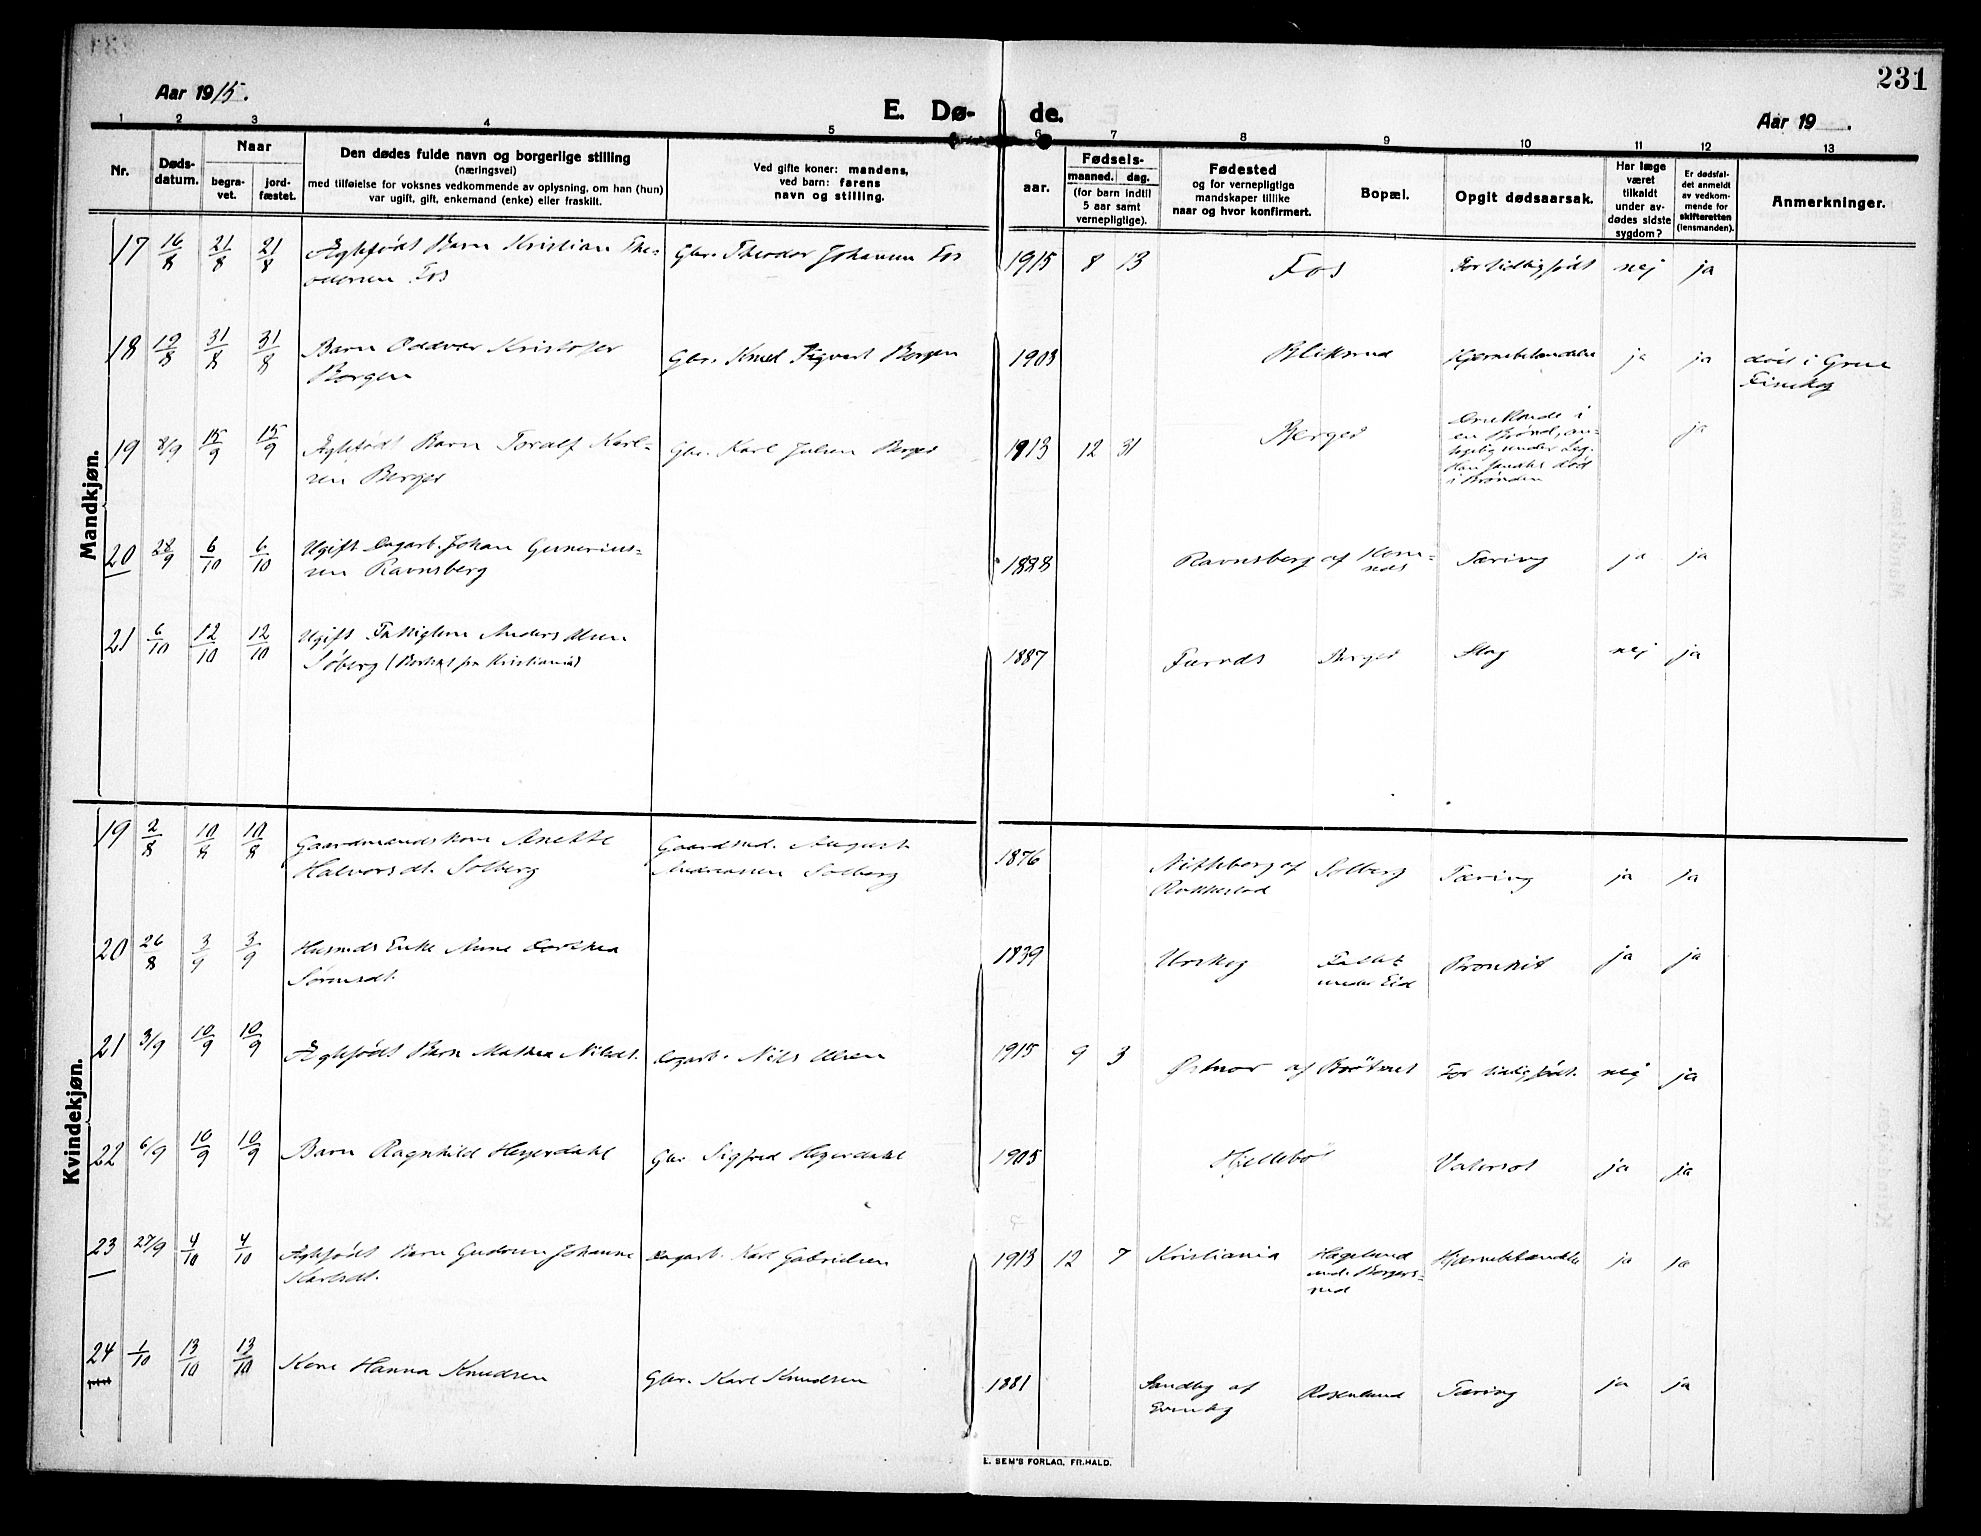 231
Aar 1915.
E. Dø- de.
Aar 19 .
1 2 3 4 5 6 7 8 9 10 11 12 13
Nr.
Døds-
datum.
Naar
begra-
vet.
jord-
fæstet.
Den dødes fulde navn og borgerlige stilling
(næringsvei)
med tilføielse for voksnes vedkommende av oplysning, om han (hun)
var ugift, gift, enkemand (enke) eller fraskilt.
Ved gifte koner: mandens,
ved barn: farens
navn og stilling.
Fødsels-
aar.
maaned. dag.
(for barn indtil
5 aar samt
vernepligtige).
Fødested
og for vernepligtige
mandskaper tillike
naar og hvor konfirmert.
Bopæl.
Opgit dødsaarsak.
Har læge
været
tilkaldt
under av-
dødes sidste
sygdom?
Er dødsfal-
det anmeldt
av vedkom-
mende for
skifteretten
(lensmanden).
Anmerkninger.
Mandkjøn.
17 16/8 21/8 21/8 Ægtefødt Barn Kristian Fos Gbr. Theodor Johansen Fos 1915 8 13 Fos For tidlig født nej ja
18 19/8 31/8 31/8 Barn Oddvar Kristofer Gbr. Knut Sigvart Borgen 1903 Bliksrud Hjernebetændelse ja ja død i Grue
Borgen Finskog
19 8/9 15/9 15/9 Ægtefødt Barn Toralf Karl- Gbr. Karl Julsen Berger 1913 12 31 Berger Druknede i ja
sen Berger en Brønd, an-
under Leg.
Han fandtes død
i Brønden
20 28/9 6/10 6/10 Ugift Dagarb. Johan Gunerius- 1888 Ravnsberg af Tæring ja ja
sen Ravnsberg
21 6/10 12/10 12/10 Ugift Anders Olsen 1887 Berger Slag nej ja
Søberg (Bortsat fra Kristiania)
Kvindekjøn.
19 2/8 10/8 10/8 Gaardmandskone Anette Gaardmd. August 1876 af Solberg Tæring ja ja
Halvorsdt. Solberg Andreassen Solberg Rakkestad
20 26/8 3/9 3/9 Husmds Enke Anne Dorthea 1839 Urskog Bronkit ja ja
Sørensdt. under Eid
21 3/9 10/9 10/9 Ægtefødt Barn Mathea Nilsdt. Dagarb. Nils Olsen 1915 9 3 Østmor af For tidlig født. nej ja
22 6/9 10/9 10/9 Barn Ragnhild Heyerdahl Gbr. Sigfred Heyerdahl 1905 Hjellebøl Vatersot ja ja
23 27/9 4/10 4/10 Ægtefødt Barn Gudrun Johanne Dagarb. Karl Gabrielsen 1913 12 7 Kristiania Hagelund Hjernebetændelse ja ja
Karlsdt. und. Borgers-
rud
24 1/10 13/10 13/10 Kone Hanna Knudsen Gbr. Karl Knudsen 1881 Sandby af Rosenlund Tæring ja ja
E. SEM'S FORLAG, FR.HALD.